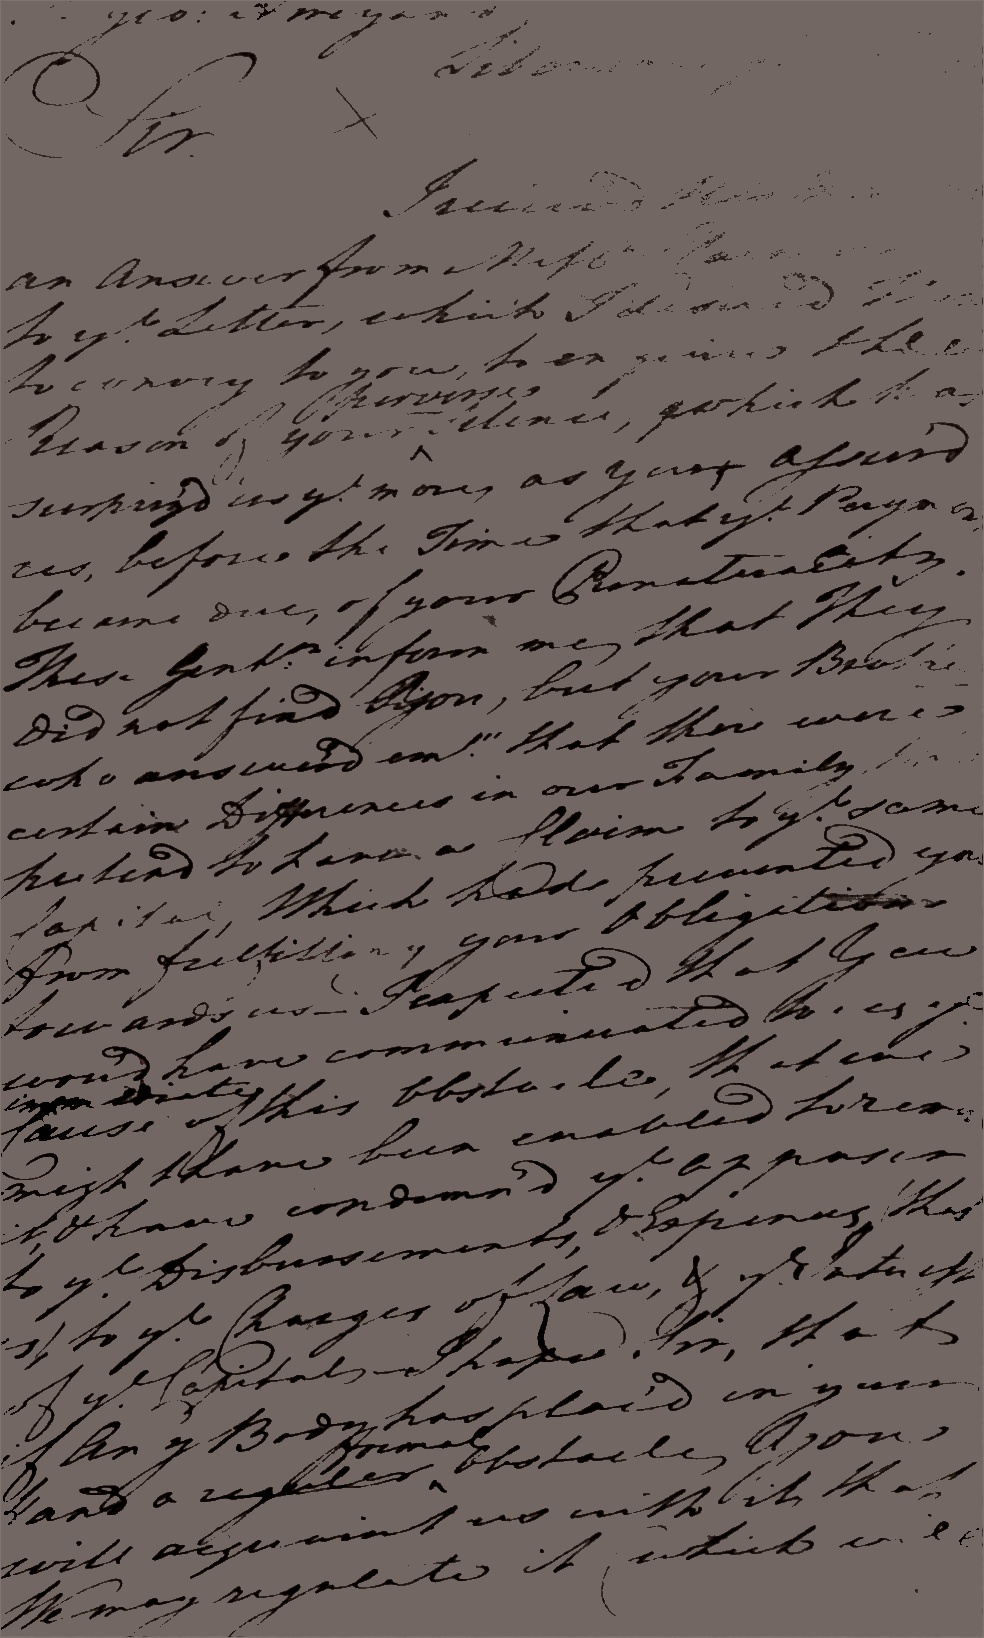 Sir.
I receiv'd
an Answer from Mess.rs
to y.r Letter, which I desired
to convey to you, to enquire the
Reason of your perverse silence, which has
surpriz'd us y.e more, as you assur'd
us, before the Time that y.e Paym
became due, of your Punctuality.
These Gent.n inform me, that They
Did not find you, but your Brother
who answer'd em "that there were
certain Differences in our Family
pretend to have a Claim to y.e same
Capital, Which had prevented you
from fulfilling your Obligations
towards us— I expected that You
would have communicated to us y.e
immediate
Cause of this Obstacle, that we
might have been enabled to remove
it, & have condemn'd y.e opposer
to y.e Disbursements, & Expences, that
is, to y.e Charges of Law, & y.e Interest
of y.e Capital— I hope Sir, that
if Any Body has plac'd in your
Hand a regular formal Obstacle, You
will acquaint us with it, that
We may regulate it which will